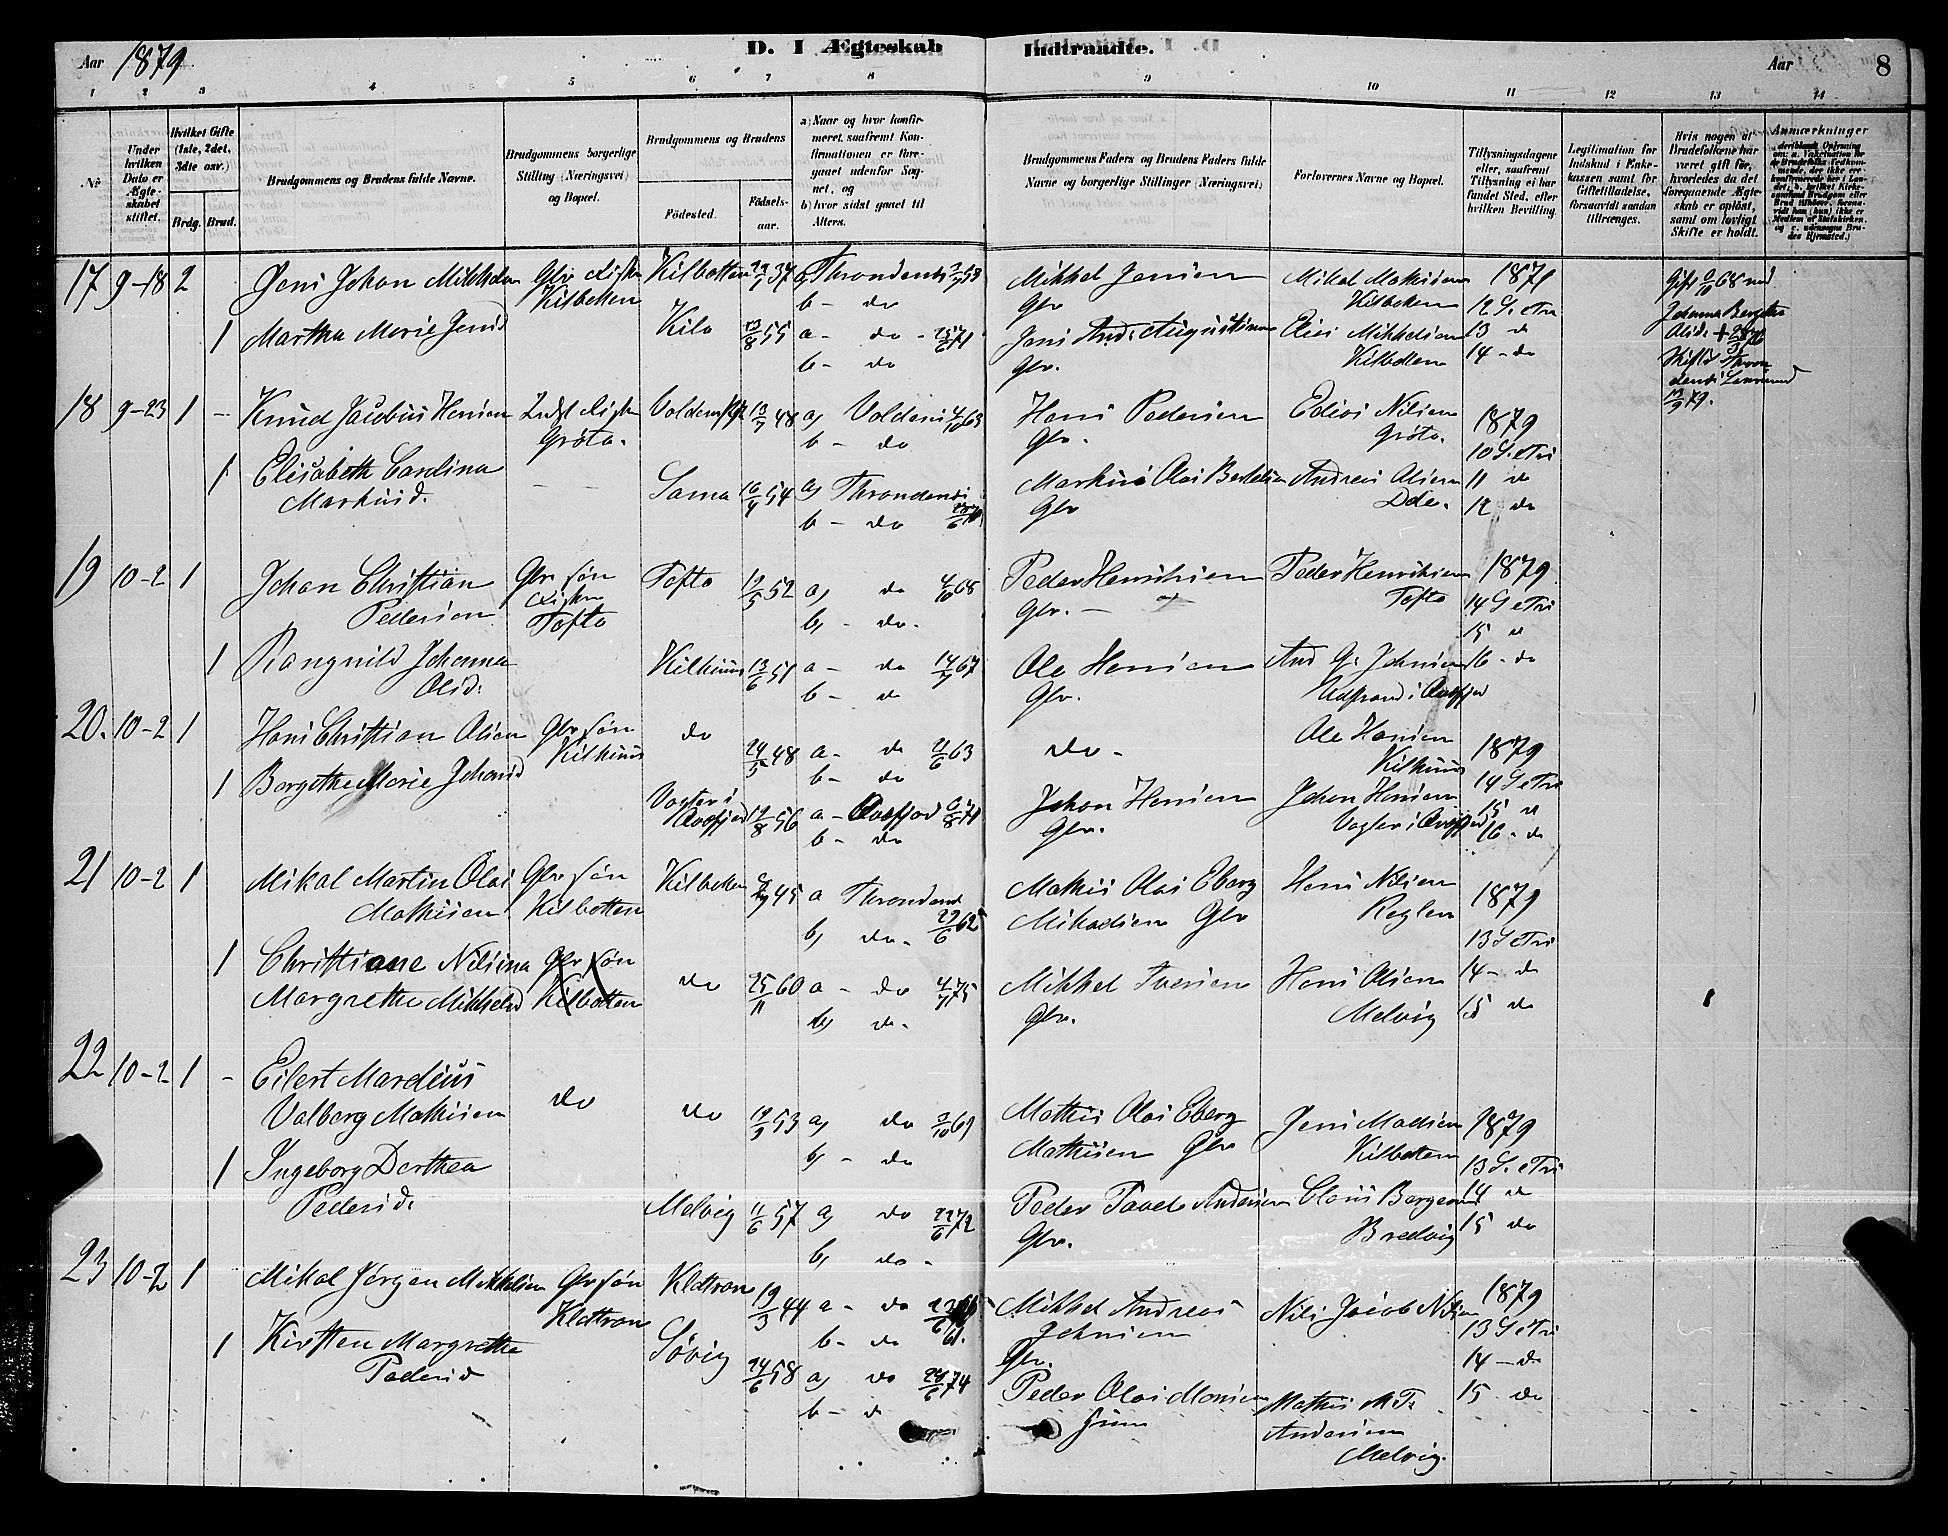 Aar 1879
D. I Ægteskab Indtraadte.
Aar 8
1 2 3 4 5 6 7 8 9 10 11 12 13 14
No
Under hvilken Dato er Ægteskabet stiftet.
Hvilket Gifte (1ste, 2det, 3dte osv.)
Brdg. Brud.
Brudgommens og Brudens fulde Navne.
Brudgommens borgerlige Stilling (Næringsvei) og Bopæl.
Brudgommens og Brudens
Fødested.
Fødselsaar.
a) Naar og hvor konfirmeret, saafremt Konfirmationen er foregaaet udenfor Sognet, og
b) hvor sidst gaaet til Alters.
Brudgommens Faders og Brudens Faders fulde Navne og borgerlige Stillinger (Næringsvei)
Forlovernes Navne og Bopæl.
Tillysningsdagene eller, saafremt Tillysning ei har fundet Sted, efter hvilken Bevilling.
Legitimation for Indskud i Enkekassen samt for Giftetilladelse, forsaavidt saadan tiltrænges.
Hvis nogen af Brudefolkene har været gift før, hvorledes da det foregaaende Ægteskab er opløst, samt om lovligt Skifte er holdt.
Anmærkninger
17 9-18 2 Jens Johan Mikkelsen Gbr Fisker Kilbotten Kilbotten 37 a Throndenæs 53
b - do
Mikkel Jensen Gbr
Mikal Mathisen Kilbotten
1879
12 S. e Tri
13 do
14 - do
Gift 68 med Johanna Bergitte Olsd. + Skifte Throndenæs Lensmand 79.
1 Martha Marie Jensd Kilo 13/8 55 a - do - 71
b - do
Jens And. Augustinusen Gbr.
Elias Mikkelsen Kilbotten
18 9-23 1 - Knud Jacobus Hansen Indst Fisker Grøta. Volden 13/7 48 a) Volden 4/10 63
b - do
Hans Pedersen Gbr.
Edias Nilsen Grøta.
1879
10 S. e Tri
11 do
12 do
1 Elisabeth Cardina Markusd. - - Sama 16/4 54 a) Throndenæs
b - do
Markus Olai Bertelsen Gbr
Andreas Olsen Dde.
19 10-2 1 Johan Christian Pedersen Gbr søn Fisker Tofto Tofto 12/5 52 a) do 4/10 68
b) - do.
Peder Henriksen Gbr. -
Peder Henriksen Tofto
1879
14 S e Tri
15 do
16 - do
1 Rangnild Johanna Olsd. Kilhuus 13/6 51 a - do 14/7 67
b - do
Ole Hansen Gbr.
And G. Johnsen
20. 10-2 1 Hans Christian Olsen Gbr søn Kilhuus do 24/5 48 a - do 21/6 63
b - do
do -
Ole Hansen Kilhuus
1879
14 S e Tri
15 do
16 - do
1 Bergethe Marie Johansd Vogter i 17/8 56 a - 71
b - do
Johan Hansen Gbr.
Johan Hansen
21 10-2 1 Mikal Martin Olai Mathisen Gbr søn Kilbotten Kilbotten 45 a Throndenæs 29/6 62
b) do.
Mathis Olai Eberg Mikaelsen Gbr
Hans Nilsen Reglen
1879
13 S e Tri
14 - do
15 do
1 Christiane Nilsina Margrethe Mikkelsd Gbr søn Kilbotten do 25/11 60 a - do 4/7 75
b) do.
Mikkel Iversen Gbr.
Hans Olsen Melvig
22 10-2 1 - Eilert Mardius Valberg Mathisen do do 19/3 53 a) do 3/10 69
b) - do
Mathis Olai Eberg Mathisen Gbr
Jens Madsen Kilbotten
1879
13 S. e Tri
14 do
15 do
1 Ingeborg Dorthea Pedersd. Melvig 11/6 57 a) do 22/6 72
b) do.
Peder Tavel Andersen Gbr.
Claus Borgersen Bredvig
23 10-2 1 Mikal Jørgen Mikkelsen Gbr søn Kldtran Kldtran 19/3 44 a - do
b - do 61.
Mikkel Andreas Johnsen Gbr.
Nils Jacob Nilsen
1879
13 S e Tri
14 - do
15 - do
1 Kirsten Margrethe Pedersd Søvig 24/6 58 a) do 24/6 74
b - d
Peder Olai Monsen
Mathis M. T. Andersen Melvig.